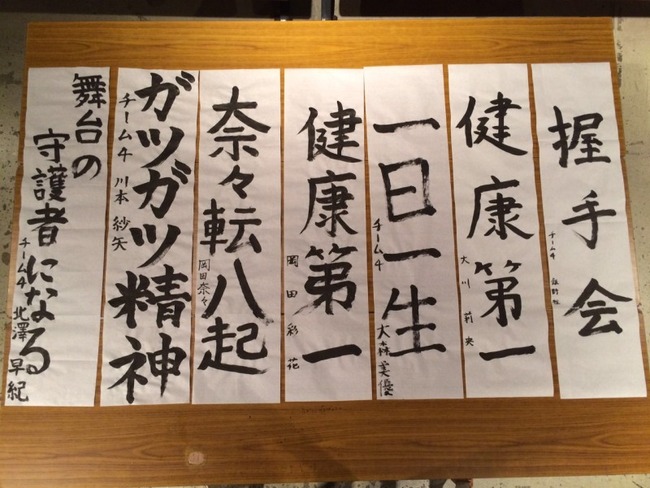 握手会
チーム4
健康第一
大川 莉央
一日一生
チーム4 大森美優
健康第一
岡田彩花
奈々転八起
岡田奈々
ガツガツ精神
チーム4 川本 紗矢
舞台の
守護者になる
チーム4 北澤 早紀